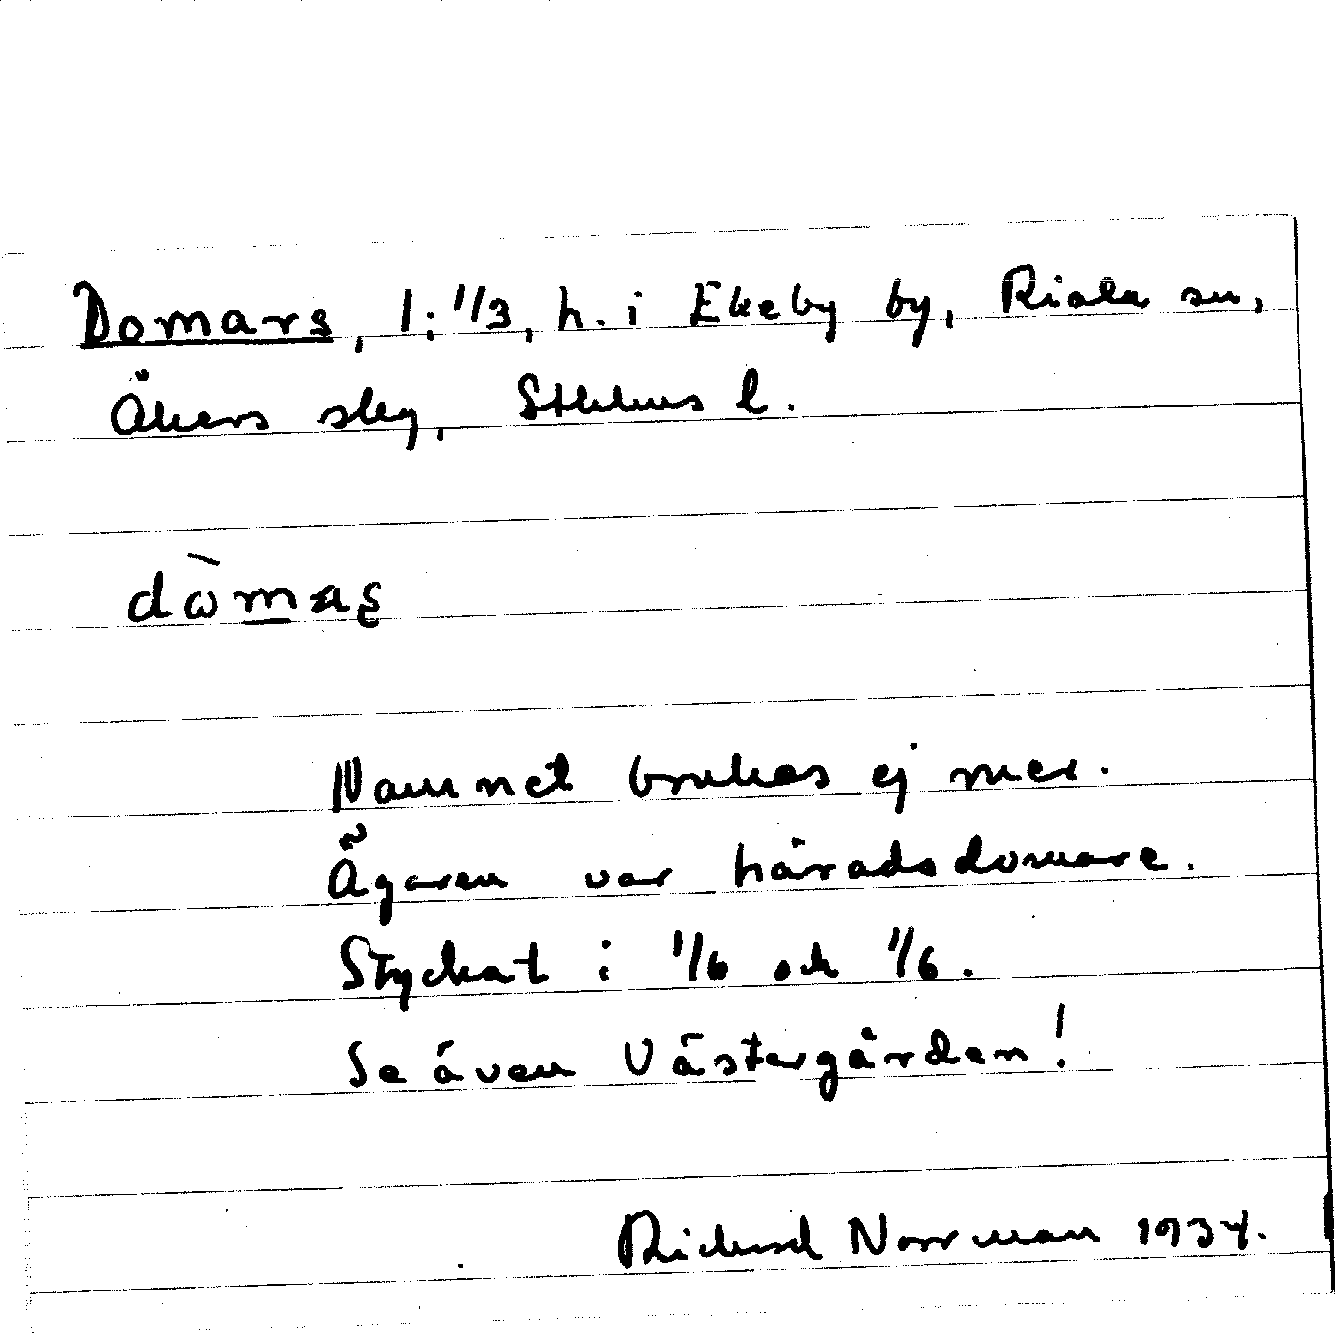 Domars, 1:1/3, h. i Ekeby by, Riala sn,
Åkers skg, Sthlms l.
Namnet brukas ej mer.
Ägaren var häradsdomare.
Styckat i 1/6 och 1/6.
Se även Västergården!
Richard Norrman 1934.